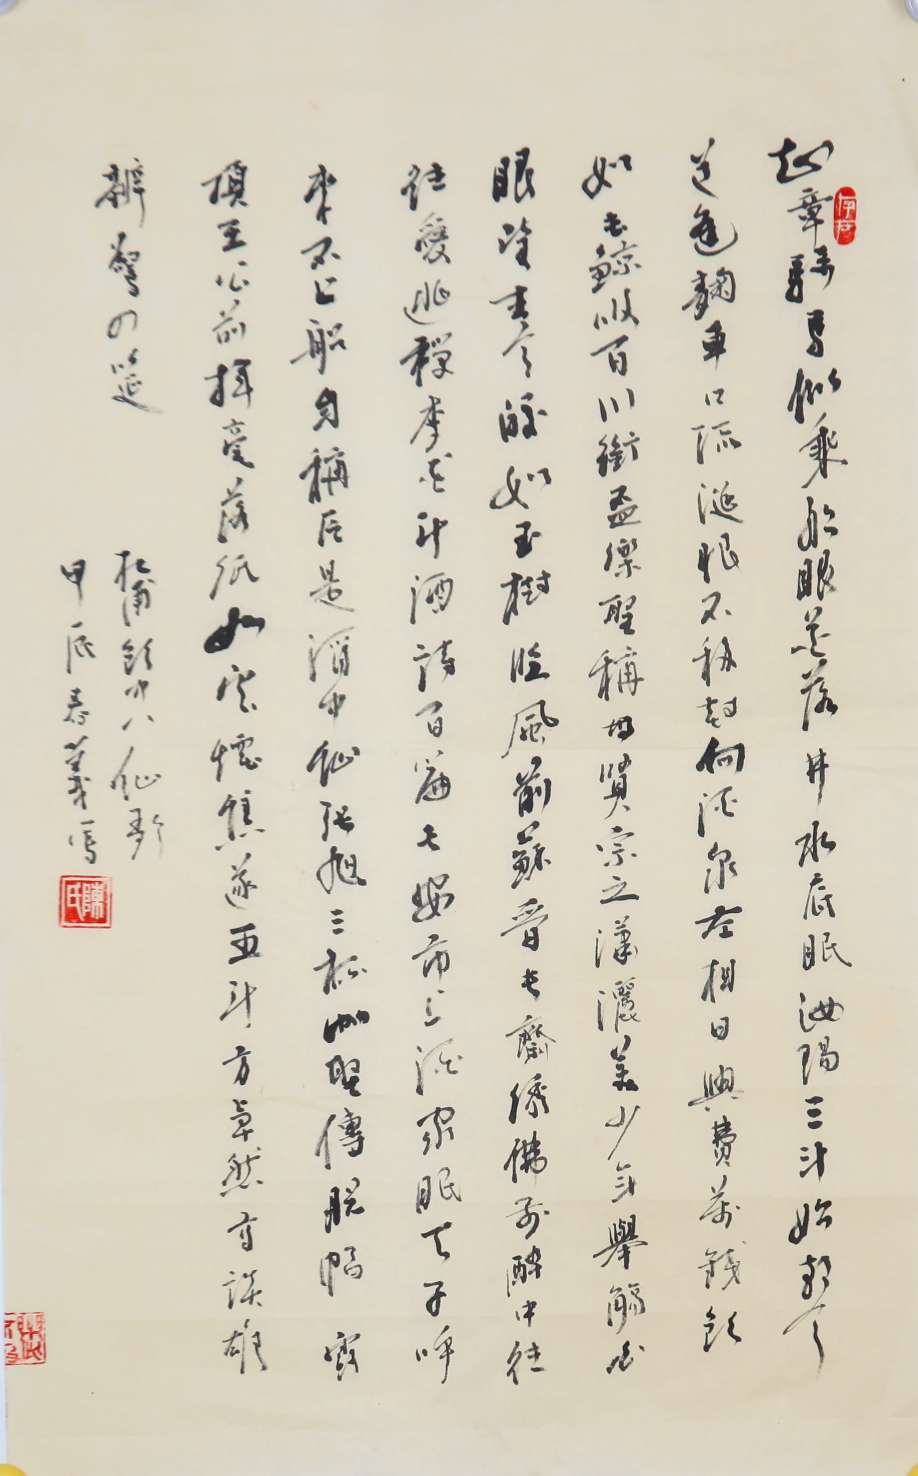 知章騎馬似乘船眼花落井水底眠汝陽三斗始朝天
道逢麴車口流涎恨不移封向酒泉左相日興費萬錢飲
如長鯨吸百川銜盃樂聖稱世賢宗之瀟灑美少年舉觴白
眼望青天皎如玉樹臨風前蘇晉長齋綉佛前醉中往
往愛逃禪李白斗酒詩百篇長安市上酒家眠天子呼
來不上船自稱臣是酒中仙張旭三杯草聖傳脫帽露
頂王公前揮毫落紙如雲煙焦遂五斗方卓然高談雄
辯驚四筵
杜甫飲中八仙歌
甲辰春義寫
陳氏